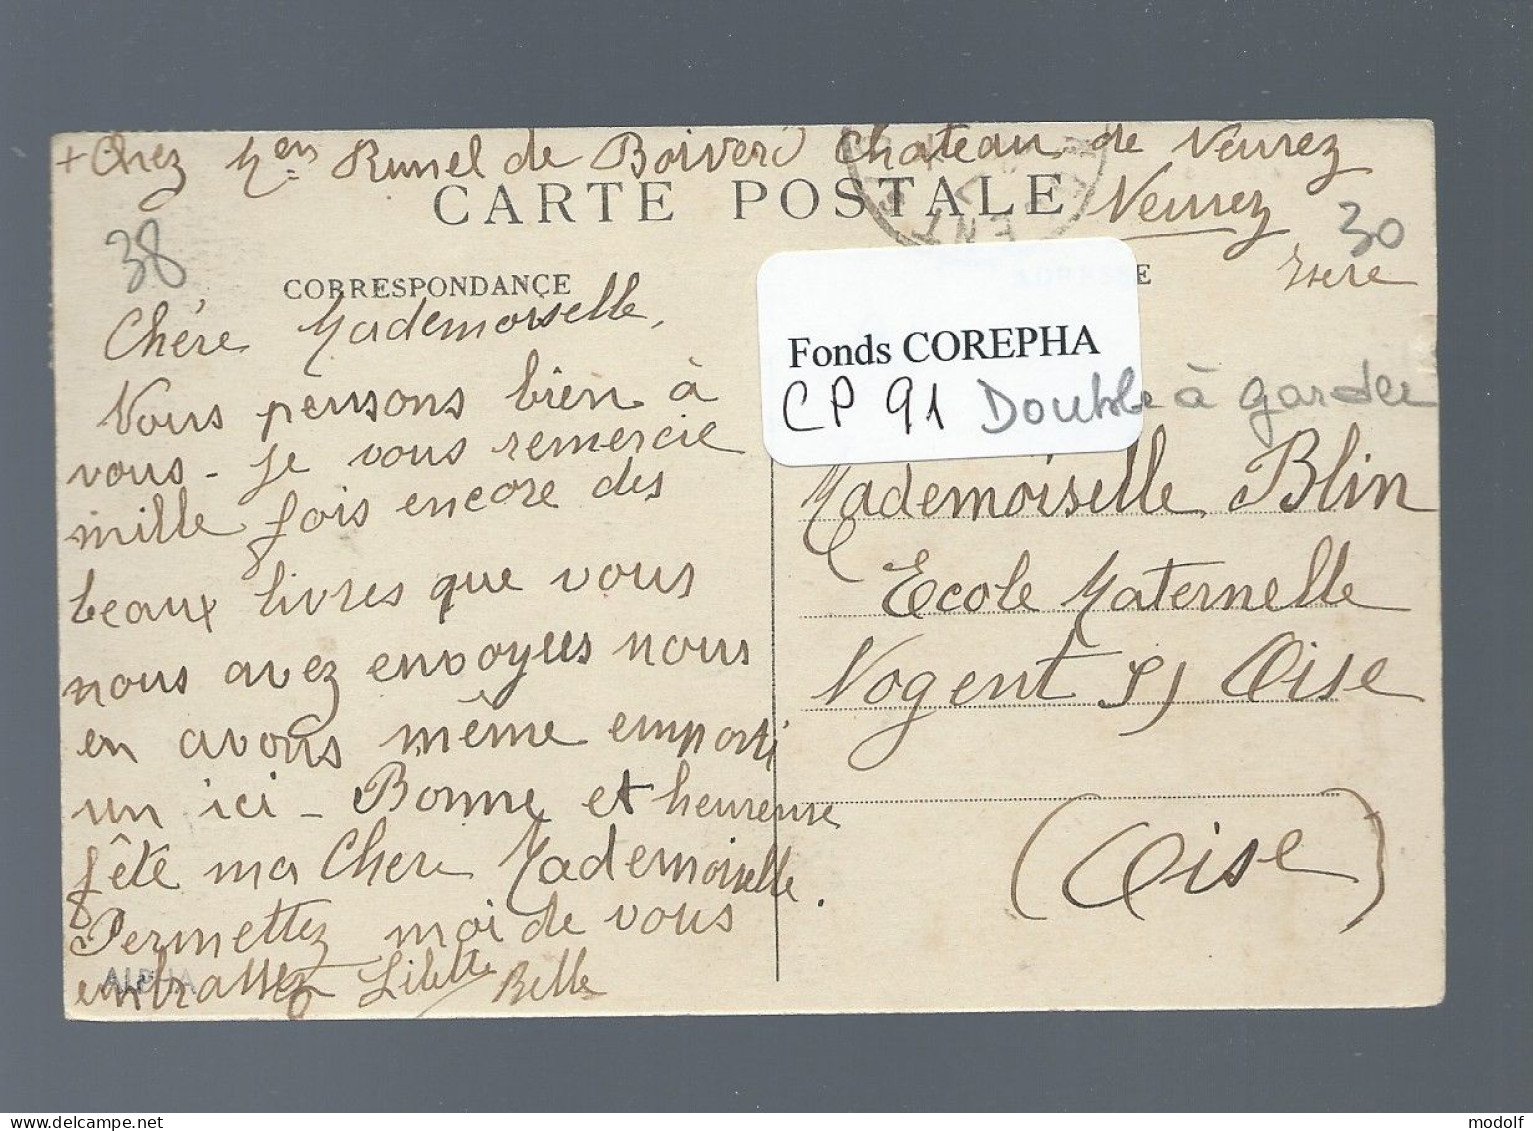 + Chez de Boiverd Chateau de Veurez
CARTE POSTALE
Veurez
38
30
Isere
CORRESPONDANCE
E
Chère Mademoiselle,
Vous pensons bien à
vous - je vous remercie
mille fois encore des
beaux livres que vous
nous avez envoyées nous
en avons même emporté
un ici - Bonne et heureuse
fête ma Chere Mademoiselle.
Permettez moi de vous
embrassez Lilette Belle
ALPHA
Fonds COREPHA
CP 91 Double à garder
Mademoiselle Blin
Ecole Maternelle
Nogent s/ Oise
(Oise)
www.delcampe.net
modolf